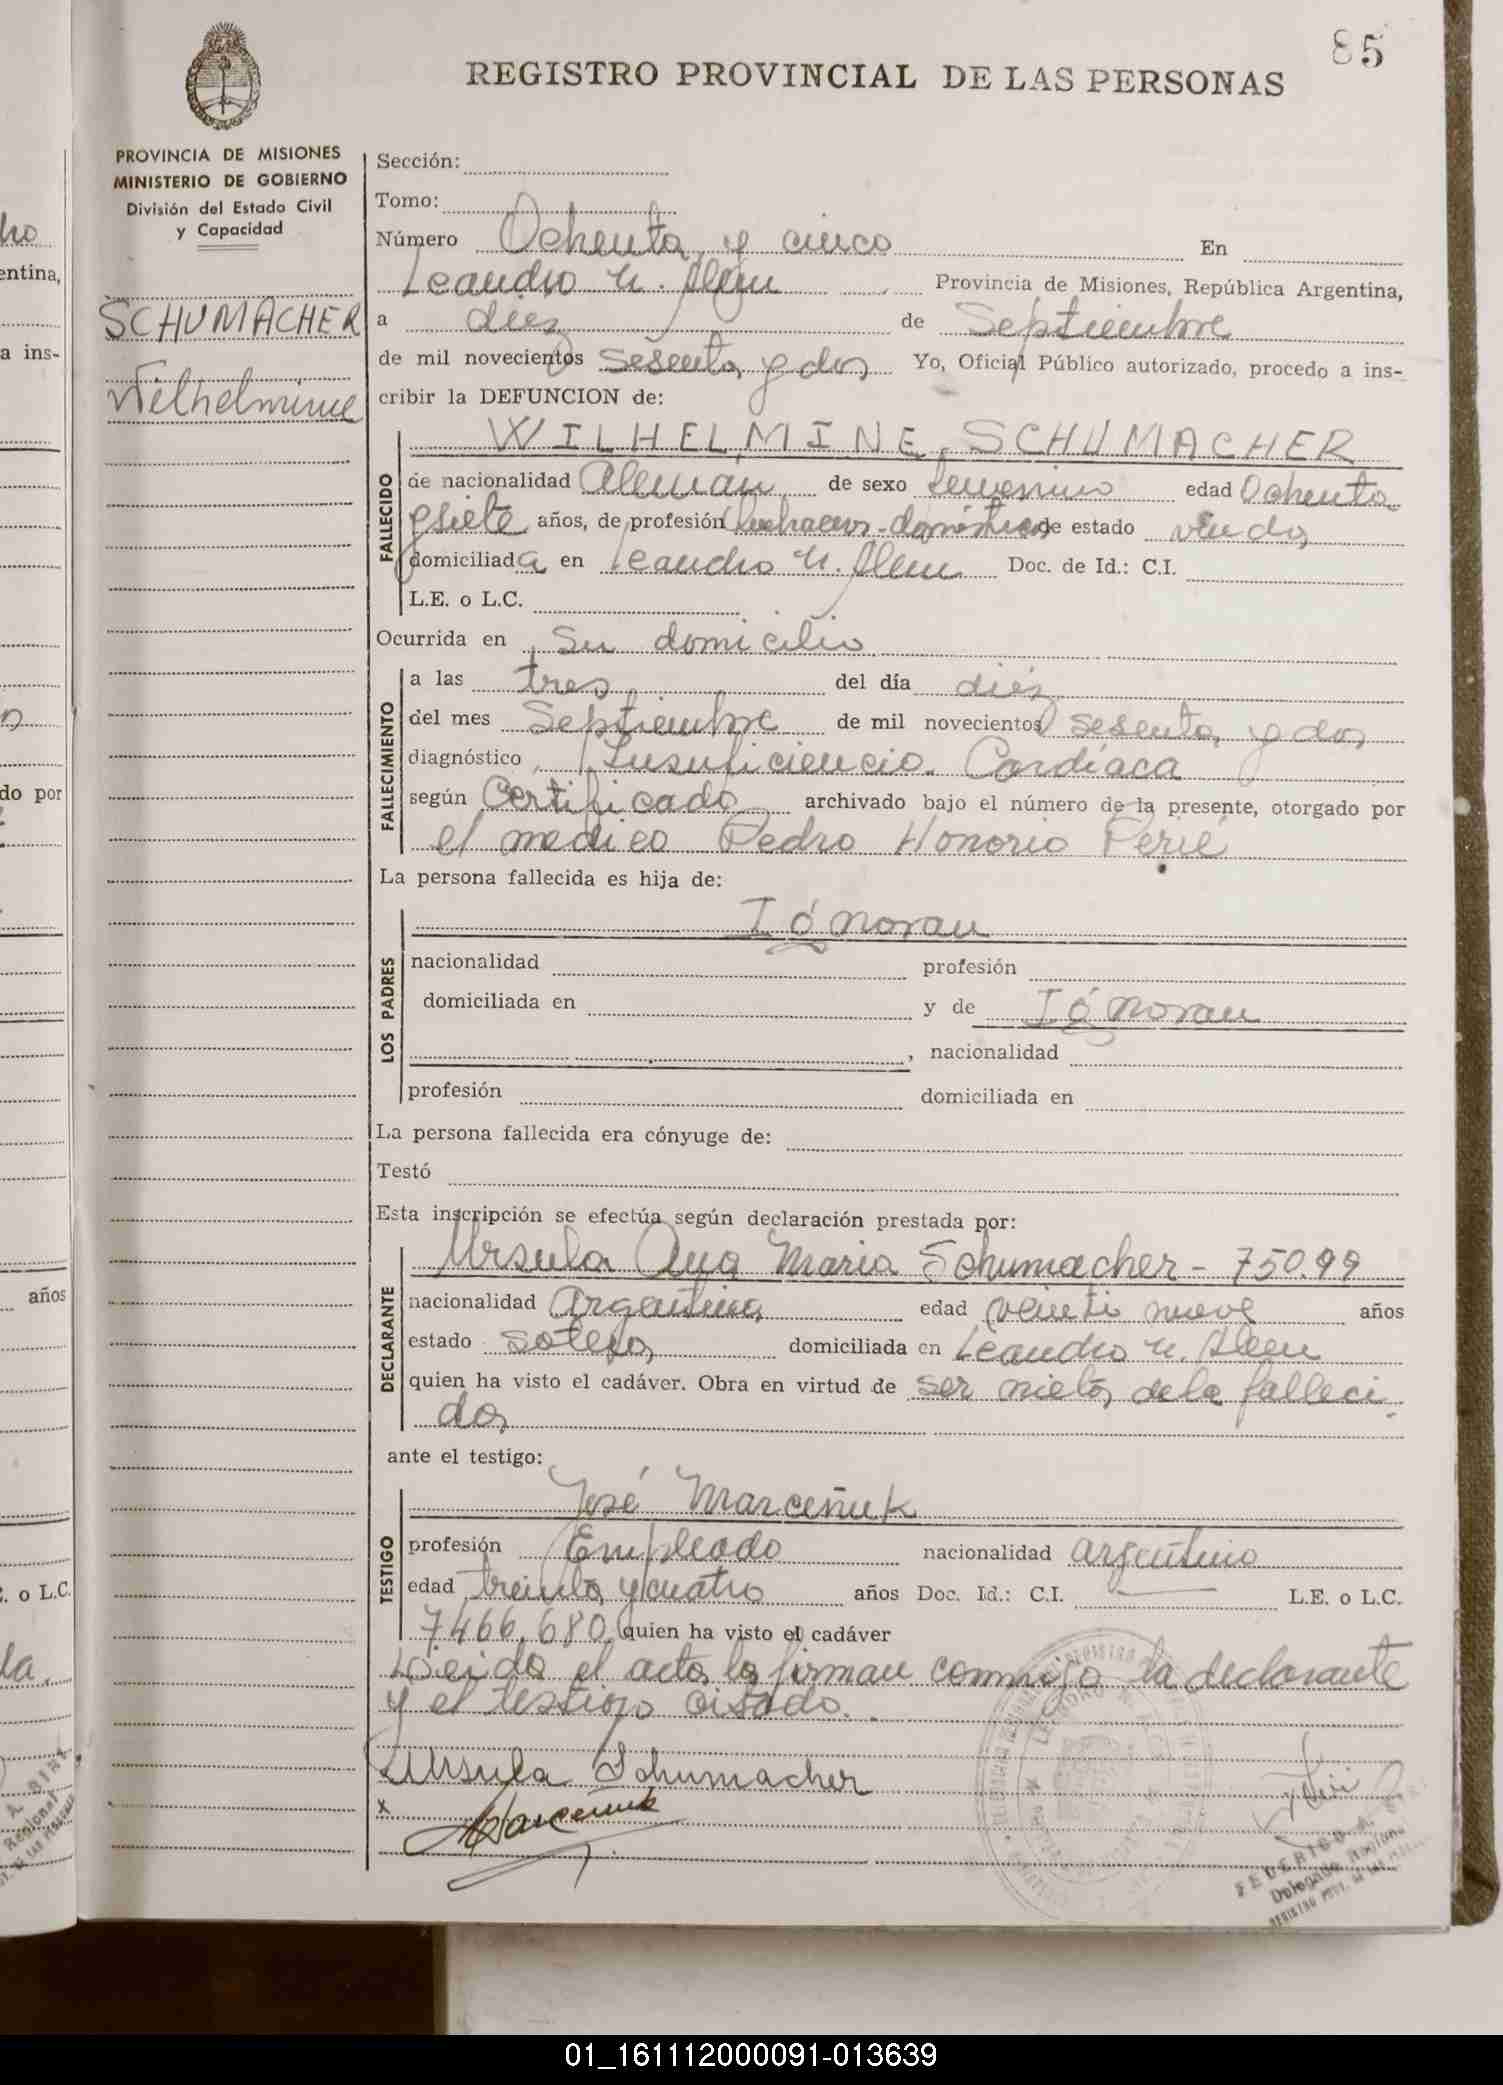 85
REGISTRO PROVINCIAL DE LAS PERSONAS
PROVINCIA DE MISIONES
MINISTERIO DE GOBIERNO
División del Estado Civil
y Capacidad
SCHUMACHER
Wilhelmine
Sección:
Tomo:
Número Ochenta y cinco En
Leandro N. Alem Provincia de Misiones, República Argentina,
a diez de Septiembre
de mil novecientos sesenta y dos Yo, Oficial Público autorizado, procedo a ins-
cribir la DEFUNCION de:
FALLECIDO
WILHELMINE SCHUMACHER
de nacionalidad Aleman de sexo femenino edad Ochenta
y siete años, de profesión Quehaceres domésticos de estado viuda
domiciliada en Leandro N. Alem Doc. de Id.: C.I.
L.E. o L.C.
Ocurrida en Su domicilio
FALLECIMIENTO
a las tres del día diéz
del mes Septiembre de mil novecientos sesenta y dos
diagnóstico Insuficiencia Cardíaca
según Certificado archivado bajo el número de la presente, otorgado por
el medico Pedro Honorio Perié
La persona fallecida es hija de:
LOS PADRES
Ignoran
nacionalidad profesión
domiciliada en y de Ignoran
, nacionalidad
profesión domiciliada en
La persona fallecida era cónyuge de:
Testó
Esta inscripción se efectúa según declaración prestada por:
DECLARANTE
Ursula Ana Maria Schumacher - 750.99
nacionalidad Argentina edad veinti nueve años
estado soltera domiciliada en Leandro N. Alem
quien ha visto el cadáver. Obra en virtud de ser nieta de la falleci
da
ante el testigo:
TESTIGO
José Marceñuk
profesión Empleado nacionalidad argentino
edad treinta y cuatro años Doc. Id.: C.I. — L.E. o L.C.
7.466.680 quien ha visto el cadáver
Leida el acta la firman conmigo la declarante
y el testigo citado.
Ursula Schumacher
x Marceñuk
FEDERICO A.
Delegado Regional
REGISTRO PROV. DE LAS PERSONAS
ho
entina,
a ins-
do por
años
C. o L.C.
la
Regional
01_161112000091-013639